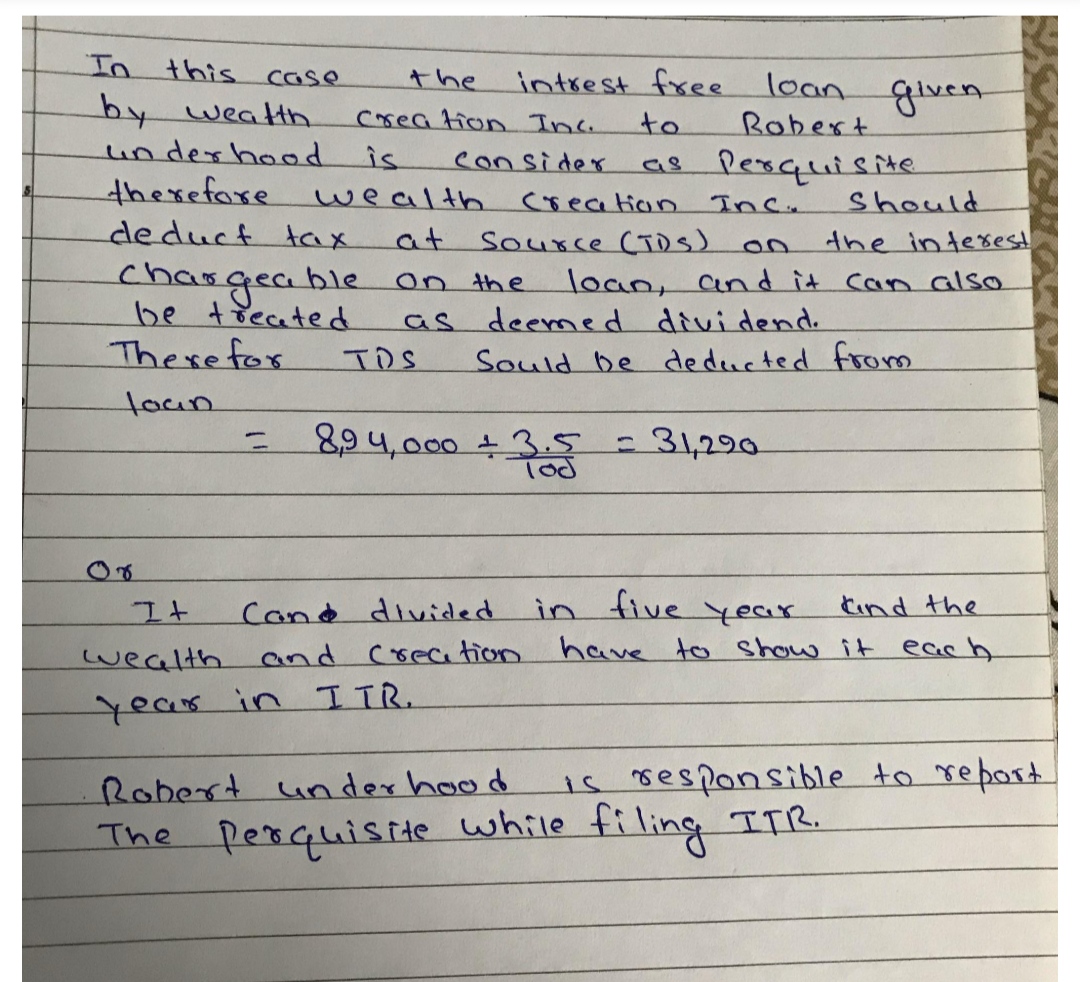 In this case the intrest free loan given
by wealth creation Inc. to Robert
underhood is consider as Perquisite
therefore wealth creation Inc. should
deduct tax at source (TDS) on the interest
chargeable on the loan, and it can also
be treated as deemed dividend.
Therefor TDS Sould be deducted from
loan
= 8,94,000 ÷ 3.5/100 = 31,290
Or
It can divided in five year and the
wealth and creation have to show it each
year in ITR.
Robert underhood is responsible to report
The Perquisite while filing ITR.